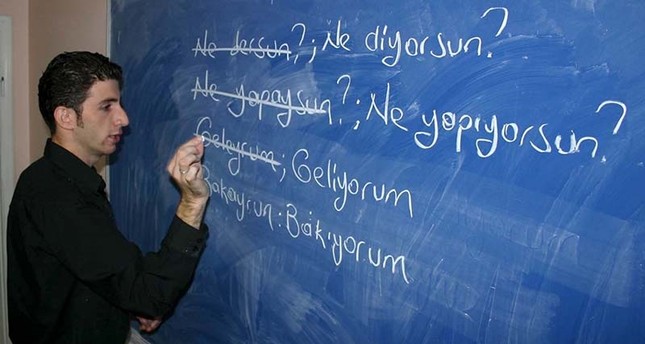 Ne dersun?; Ne diyorsun?
Ne yapaysun?; Ne yapıyorsun?
Geleyrum; Geliyorum
Bakayrun. Bakıyorum